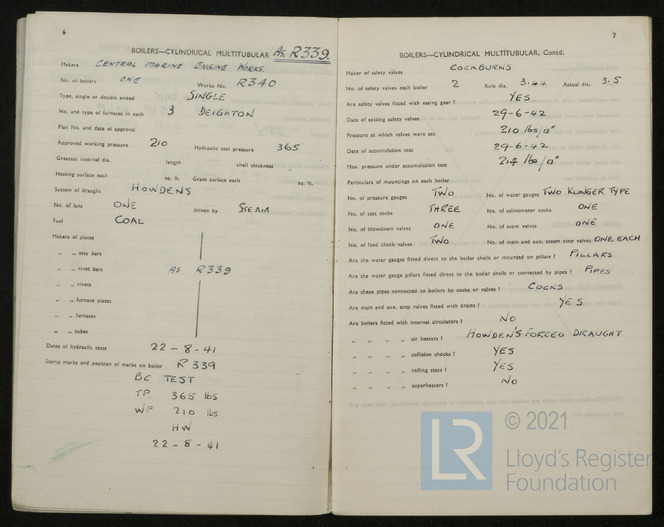 6
BOILERS—CYLINDRICAL MULTITUBULAR As. R339.
Makers CENTRAL MARINE ENGINE WORKS.
No. of boilers ONE Works No. R340
Type, single or double ended SINGLE
No. and type of furnaces in each 3 DEIGHTON
Plan No. and date of approval
Approved working pressure 210 Hydraulic test pressure 365
Greatest internal dia. length shell thickness
Heating surface each sq. ft. Grate surface each sq. ft.
System of draught HOWDENS
No. of fans ONE driven by STEAM
Fuel COAL
Makers of plates
„ „ stay bars
„ „ rivet bars AS R339
„ „ rivets
„ „ furnace plates
„ „ furnaces
„ „ tubes
Dates of hydraulic tests 22-8-41
Stamp marks and position of marks on boiler R339
BC TEST
TP 365 lbs
WP 210 lbs
HW
22-8-41
7
BOILERS—CYLINDRICAL MULTITUBULAR, Contd.
Maker of safety valves COCKBURNS
No. of safety valves each boiler 2 Rule dia. 3.44 Actual dia. 3.5
Are safety valves fitted with easing gear? YES.
Date of setting safety valves 29-6-42
Pressure at which valves were set 210 lbs/□"
Date of accumulation test 29-6-42
Max. pressure under accumulation test 214 lbs/□"
Particulars of mountings on each boiler
No. of pressure gauges TWO No. of water gauges TWO KLINGER TYPE
No. of test cocks THREE No. of salinometer cocks ONE
No. of blowdown valves ONE No. of scum valves ONE
No. of feed check valves TWO No. of main and aux. steam stop valves ONE EACH
Are the water gauges fitted direct to the boiler shells or mounted on pillars? PILLARS
Are the water gauge pillars fitted direct to the boiler shells or connected by pipes? PIPES
Are these pipes connected to boilers by cocks or valves? COCKS
Are main and aux. stop valves fitted with drains? YES
Are boilers fitted with internal circulators? NO
„ „ „ „ air heaters? HOWDEN'S FORCED DRAUGHT
„ „ „ „ collision chocks? YES
„ „ „ „ rolling stays? YES
„ „ „ „ superheaters? NO
LR
© 2021
Lloyd's Register
Foundation